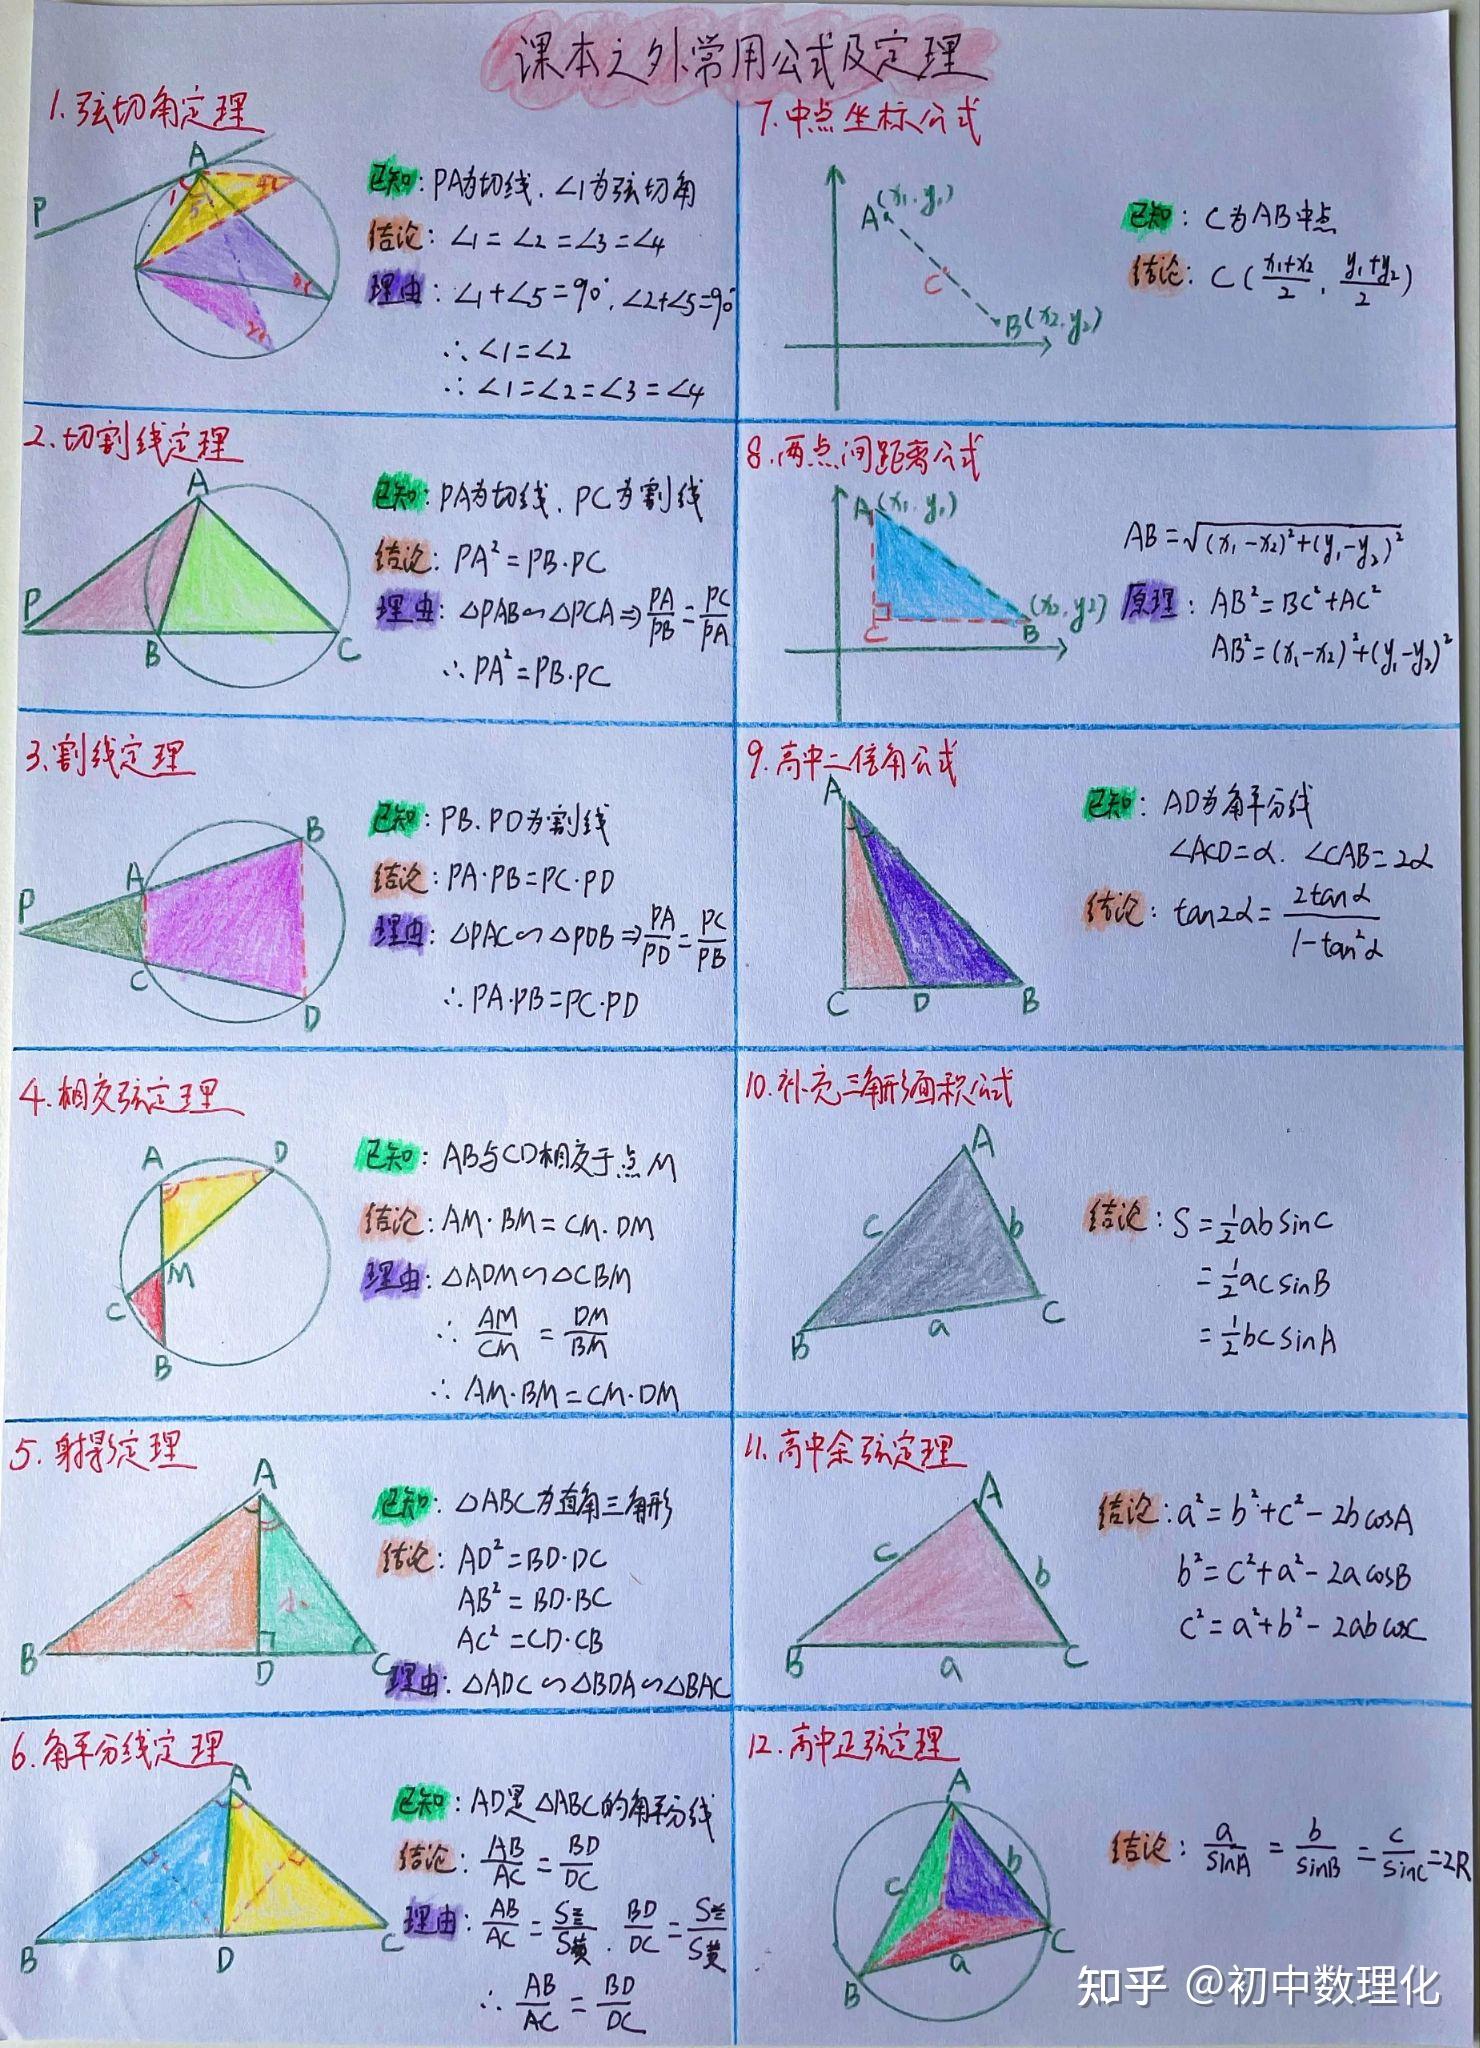 课本之外常用公式及定理
1.弦切角定理
A
P
1
5
4
3
2
已知:PA为切线.∠1为弦切角
结论:∠1=∠2=∠3=∠4
理由:∠1+∠5=90°,∠2+∠5=90°
∴∠1=∠2
∴∠1=∠2=∠3=∠4
2.切割线定理
A
P
B
C
已知:PA为切线.PC为割线
结论:PA²=PB·PC
理由:△PAB∽△PCA⇒PA/PB=PC/PA
∴PA²=PB·PC
3.割线定理
B
A
P
C
D
已知:PB.PD为割线
结论:PA·PB=PC·PD
理由:△PAC∽△PDB⇒PA/PD=PC/PB
∴PA·PB=PC·PD
4.相交弦定理
A
D
M
C
B
已知:AB与CD相交于点M
结论:AM·BM=CM·DM
理由:△ADM∽△CBM
∴AM/CM=DM/BM
∴AM·BM=CM·DM
5.射影定理
A
大
小
B
D
C
已知:△ABC为直角三角形
结论:AD²=BD·DC
AB²=BD·BC
AC²=CD·CB
理由:△ADC∽△BDA∽△BAC
6.角平分线定理
A
B
D
C
已知:AD是△ABC的角平分线
结论:AB/AC=BD/DC
理由:AB/AC=S兰/S黄.BD/DC=S兰/S黄
∴AB/AC=BD/DC
7.中点坐标公式
A(x₁,y₁)
C
B(x₂,y₂)
已知:C为AB中点
结论:C(x₁+x₂/2,y₁+y₂/2)
8.两点间距离公式
A(x₁,y₁)
(x₂,y₂)
C
B
AB=√(x₁-x₂)²+(y₁-y₂)²
原理:AB²=BC²+AC²
AB²=(x₁-x₂)²+(y₁-y₂)²
9.高中二倍角公式
A
C
D
B
已知:AD为角平分线
∠ACD=α.∠CAB=2α
结论:tan2α=2tanα/1-tan²α
10.补充三角形面积公式
A
c
b
B
a
C
结论:S=½absinC
=½acsinB
=½bcsinA
11.高中余弦定理
A
c
b
B
a
C
结论:a²=b²+c²-2bcosA
b²=c²+a²-2acosB
c²=a²+b²-2abcosC
12.高中正弦定理
A
c
b
B
a
C
结论:a/sinA=b/sinB=c/sinC=2R
知乎 @初中数理化